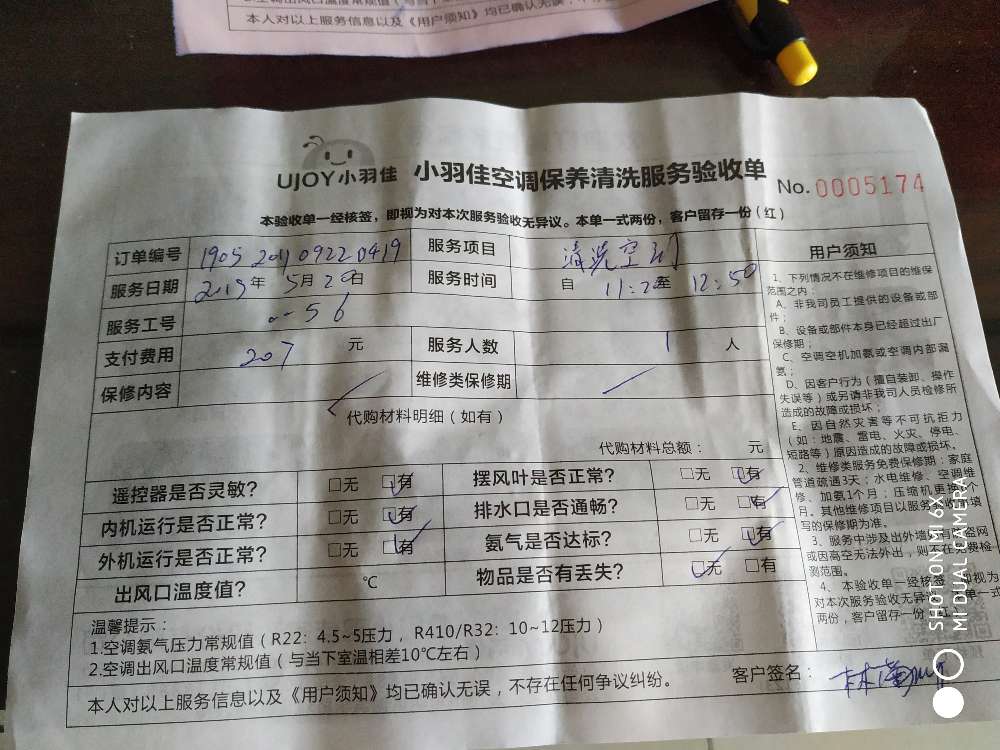 2.空调出风口温度常规值(与当下
本人对以上服务信息以及《用户须知》均已确认无误,不存在
UJOY小羽佳 小羽佳空调保养清洗服务验收单 No.0005174
本验收单一经核签,即视为对本次服务验收无异议。本单一式两份,客户留存一份(红)
订单编号 1905201109220419 服务项目 清洗空调
服务日期 2019年 5月20日 服务时间 自 11:20至 12:50
服务工号 56
支付费用 207 元 服务人数 1 人
保修内容 维修类保修期
代购材料明细(如有)
代购材料总额: 元
遥控器是否灵敏? □无 □有 摆风叶是否正常? □无 □有
内机运行是否正常? □无 □有 排水口是否通畅? □无 □有
外机运行是否正常? □无 □有 氨气是否达标? □无 □有
出风口温度值? ℃ 物品是否有丢失? □无 □有
温馨提示:
1.空调氨气压力常规值(R22:4.5~5压力,R410/R32:10~12压力)
2.空调出风口温度常规值(与当下室温相差10℃左右)
本人对以上服务信息以及《用户须知》均已确认无误,不存在任何争议纠纷。 客户签名:
用户须知
1、下列情况不在维修项目的维保
范围之内:
A、非我司员工提供的设备或部
件;
B、设备或部件本身已经超过出厂
保修期;
C、空调空机加氨或空调内部漏
氨;
D、因客户行为(擅自装卸、操作
失误等)或另请非我司人员检修所
造成的故障或损坏;
E、因自然灾害等不可抗拒力
(如:地震、雷电、火灾、停电、
短路等)原因造成的故障或损坏。
2、维修类服务免费保修期:家庭
管道疏通3天;水电维修、空调维
修、加氨1个月;压缩机更换
月。其他维修项目以服务 填
写的保修期为准。
3、服务中涉及出外墙 有防盗网
或因高空无法外出,则不在 费检
测范围。
4、本验收单一经核签,即视为
对本次服务验收无异议。本单一式
两份,客户留存一份(红)
SHOT ON MI 6X
MI DUAL CAMERA